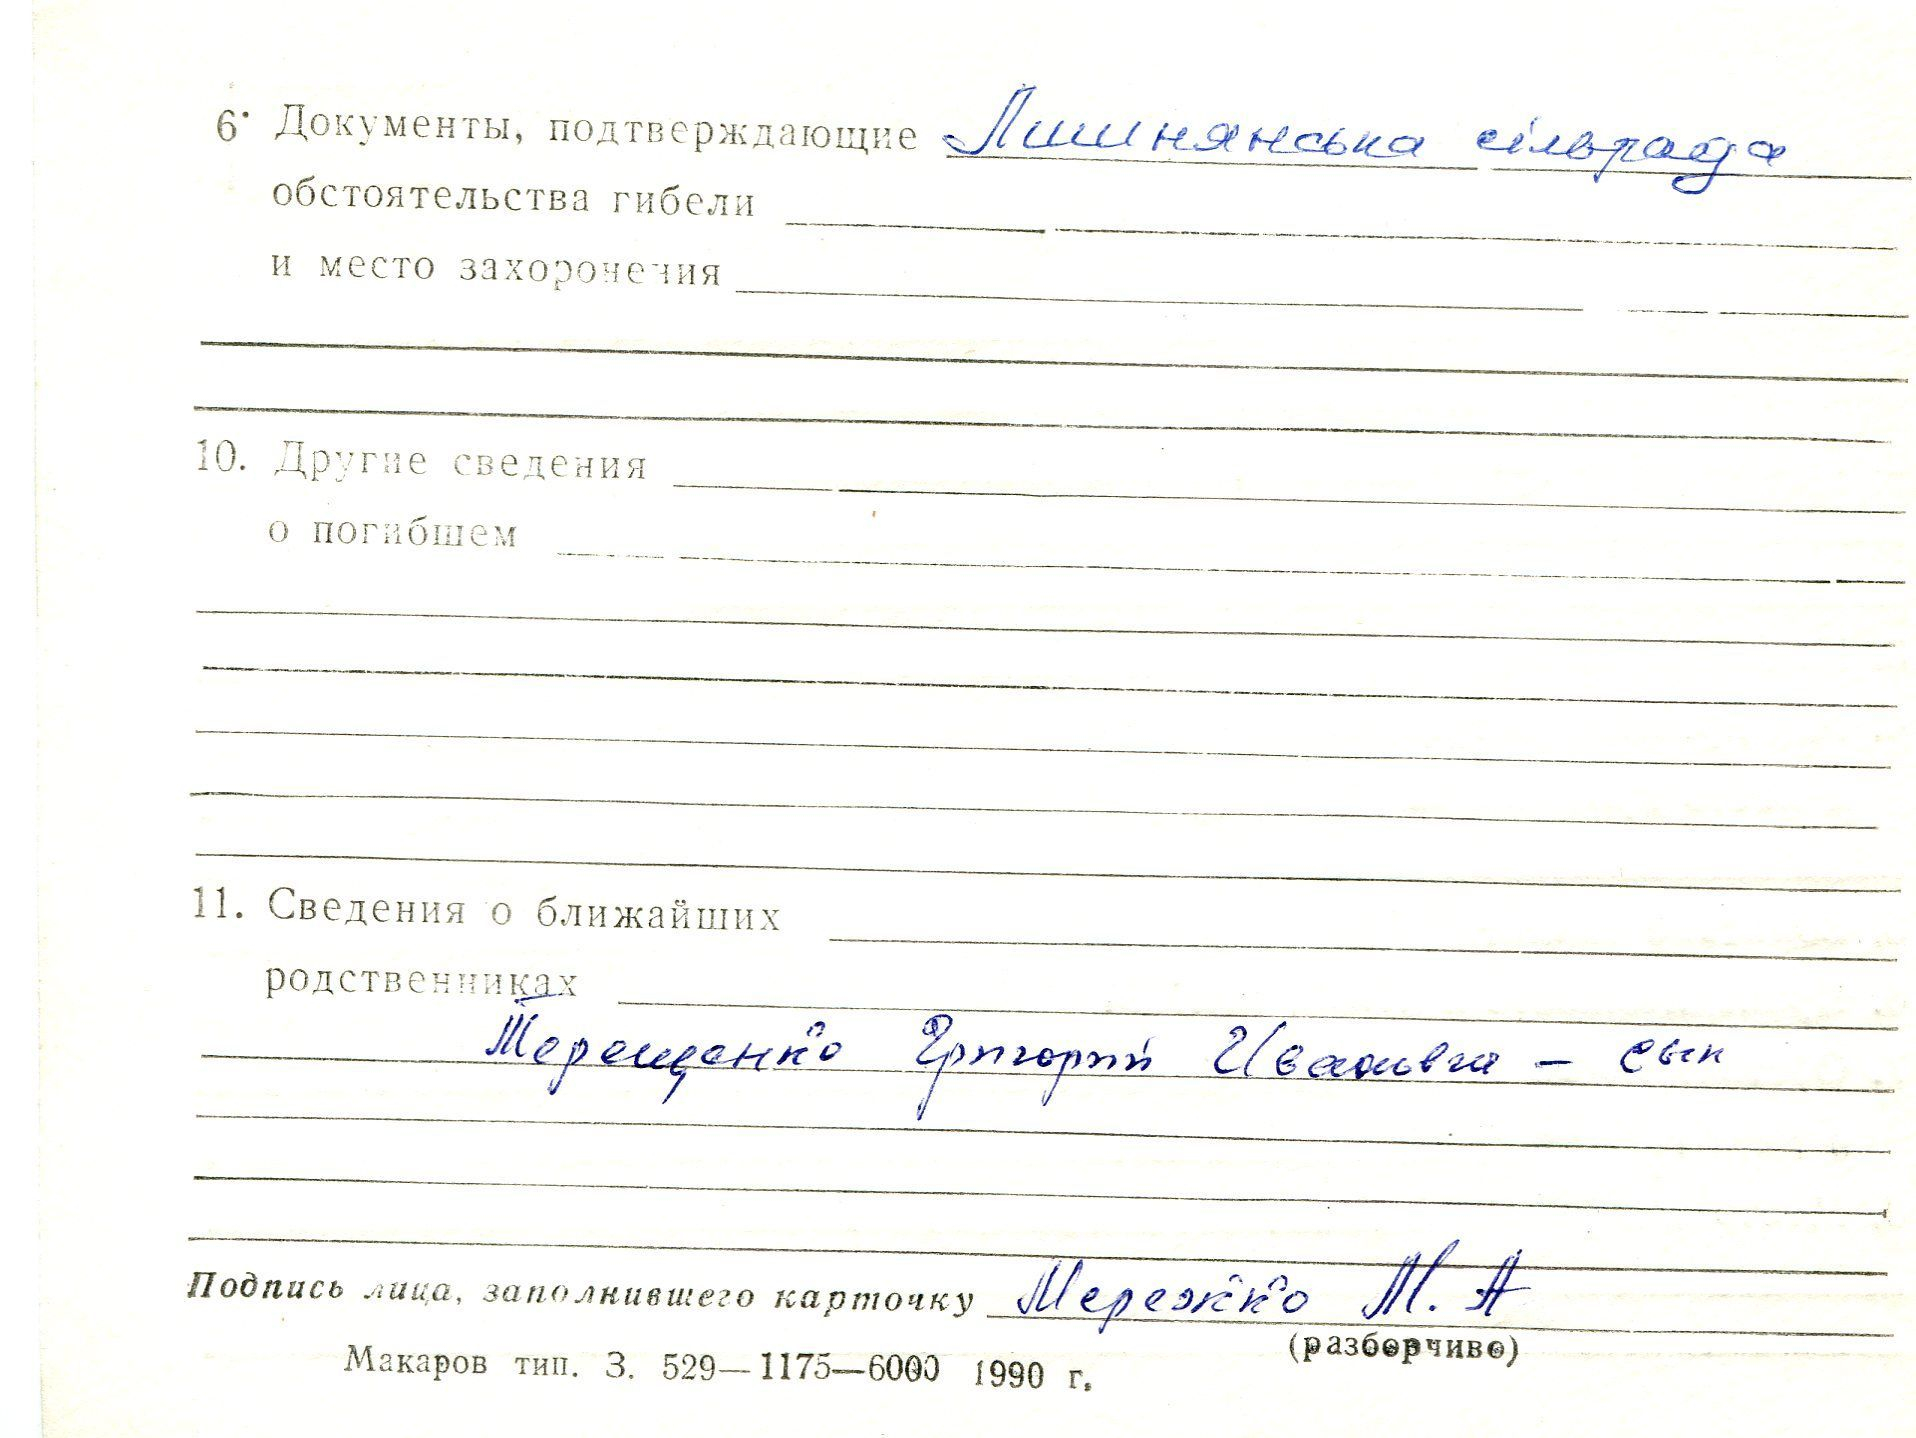 6. Документы, подтверждающие Лишнянська сільрада
обстоятельства гибели
и место захоронения
10. Другие сведения
о погибшем
11. Сведения о ближайших
родственниках
Терещенко Григорий Иванович – сын
Подпись лица, заполнившего карточку Мережко М. А
(разборчиво)
Макаров тип. З. 529—1175—6000 1990 г.